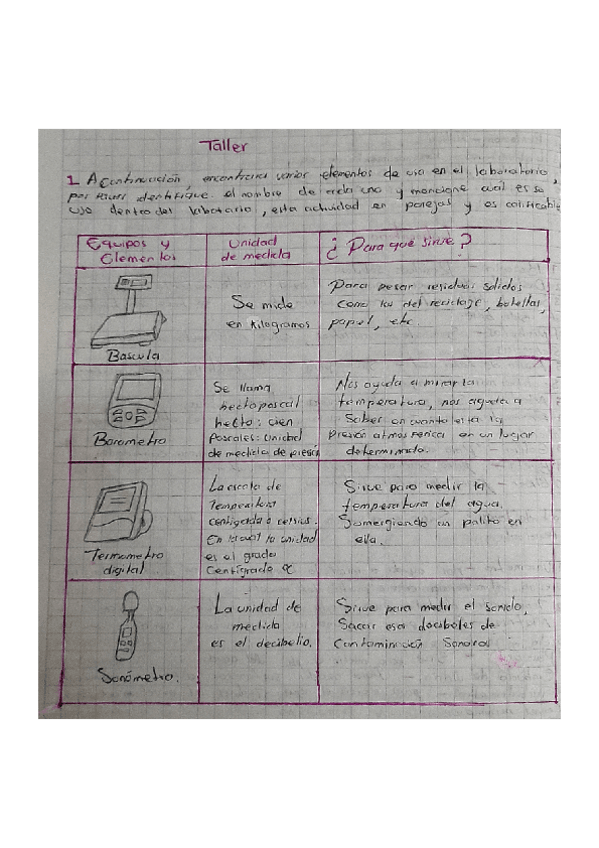 Taller
1 A continuación, encontrara varios elementos de uso en el laboratorio,
por favor identifique el nombre de cada uno y mencione cual es su
uso dentro del laboratorio, esta actividad en parejas y es calificable
Equipos y
Elementos
Unidad
de medida
¿Para qué sirve?
Bascula
Se mide
en kilogramos
Para pesar residuos solidos
como los del reciclaje, botellas,
papel, etc.
Barometro
Se llama
hectopascal
hecto: cien
Pascales: Unidad
de medida de presión
Nos ayuda a mirar la
temperatura, nos ayuda a
saber en cuanto esta la
Presión atmosferica en un lugar
determinado.
Termometro
digital
La escala de
Temperatura
centigrada o celsius.
En la cual la unidad
es el grado
Centigrado °C
Sirve para medir la
temperatura del agua.
Somergiendo un palito en
ella.
Sonómetro.
La unidad de
medida
es el decibelio.
Sirve para medir el sonido,
Sacar esos decibeles de
Contaminación Sonora